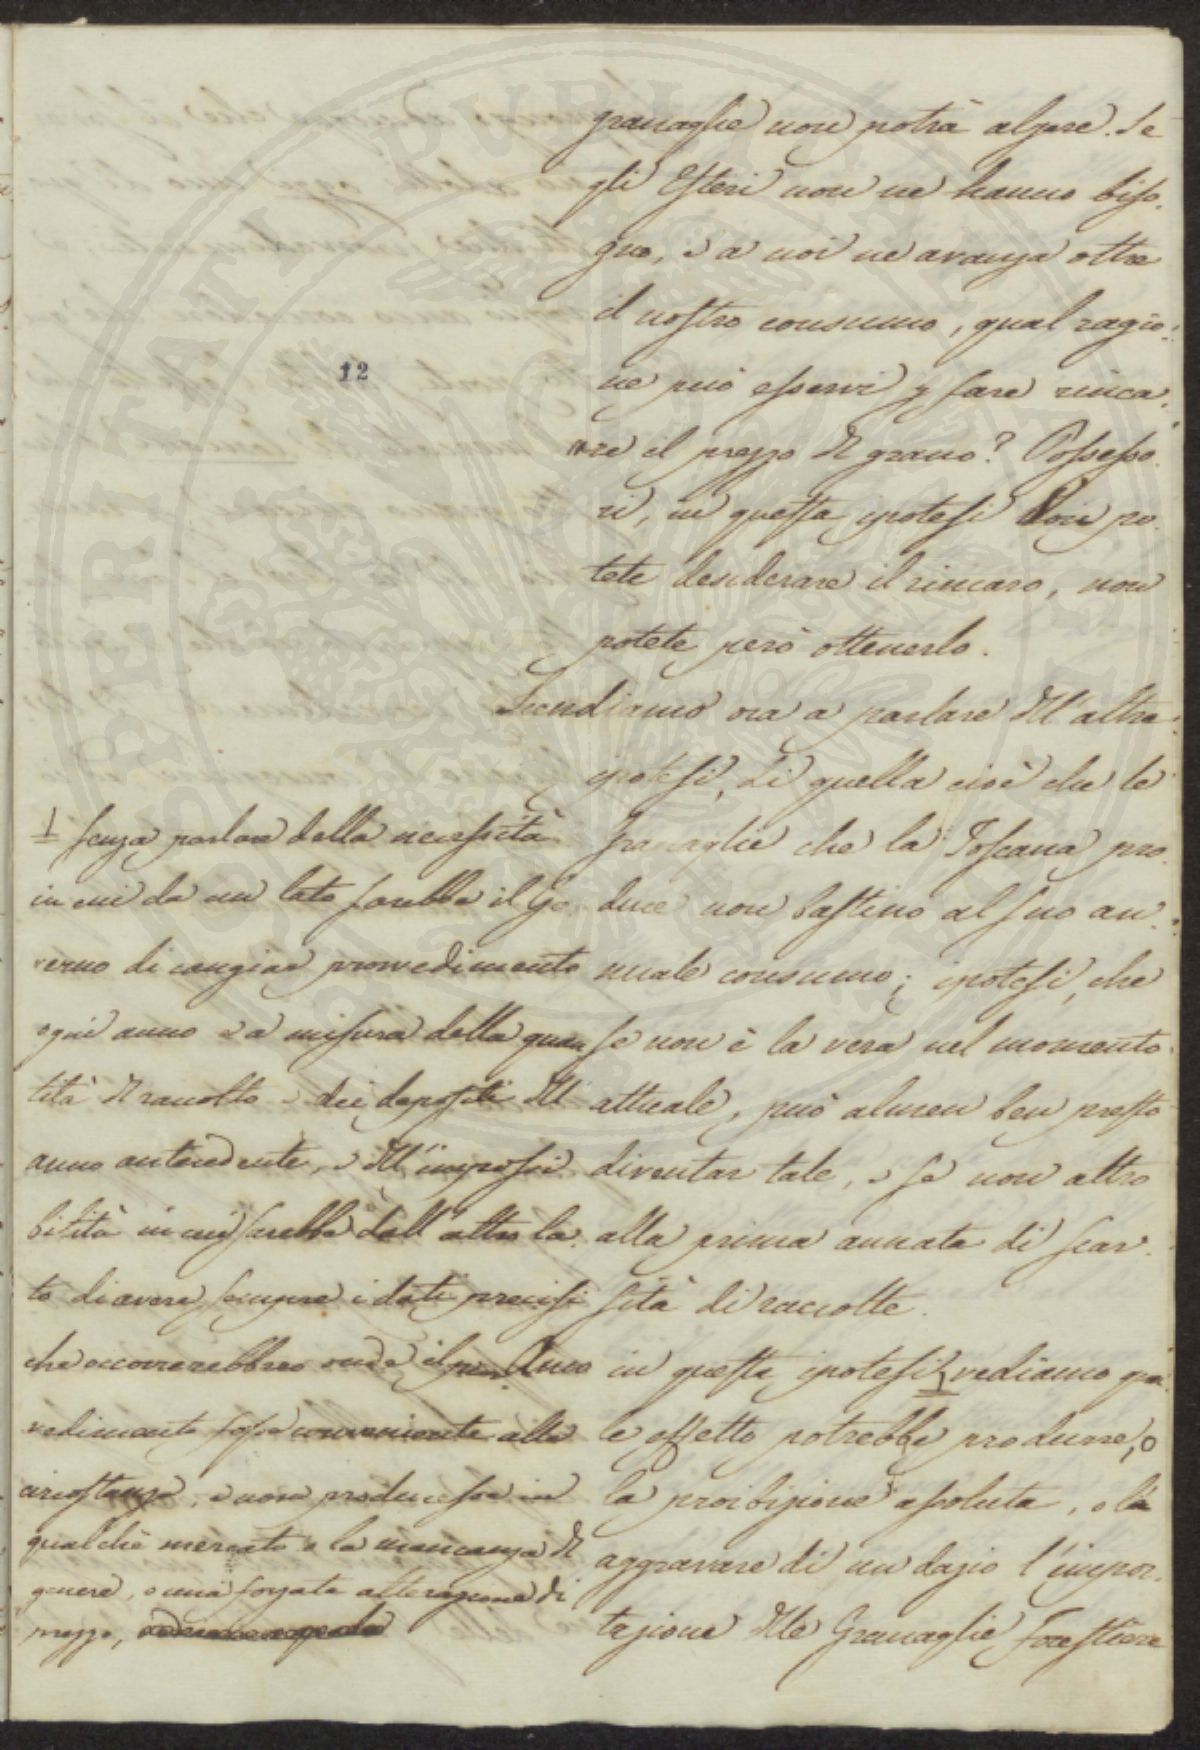 12
granaglie non potrà alzare. Se
gli Esteri non ne hanno biso.
gno, e a noi ne avanza oltre
il nostro consumo, qual ragio:
ne può esservi p fare rinca:
re il prezzo del grano? Possesso.
ri, in questa ipotesi Voi po.
tete desiderare il rincaro, non
potete però ottenerlo.
Scendiamo ora a parlare dell'altra
ipotesi, di quella cioè che le
Granaglie che la Toscana pro.
duce non bastino al suo an:
nuale consumo; ipotesi, che
se non è la vera nel momento
attuale, può almen ben presto
diventar tale, e se non altro
alla prima annata di scar.
sità di raccolte.
in questa ipotesi 1 vediamo qua.
le effetto potrebbe produrre, o
la proibizione assoluta, o la
aggravare di un dazio l'impor.
tazione delle Granaglie forestiere
1 senza parlare della necessità
in cui da un lato sarebbe il Go.
verno di cangiar provvedimento
ogni anno e a misura della quan
tità del raccolto e dei depositi dell'
anno antecedente, e dell'impossi
bilità in cui sarebbe dall'altro la.
to di avere sempre i dati precisi
che occorrerebbero onde il provvedimento
vedimento fosse conveniente alle
circostanze, e non producesse in
qualche mercato o la mancanza del
genere, o una forzata alterazione di
prezzo,